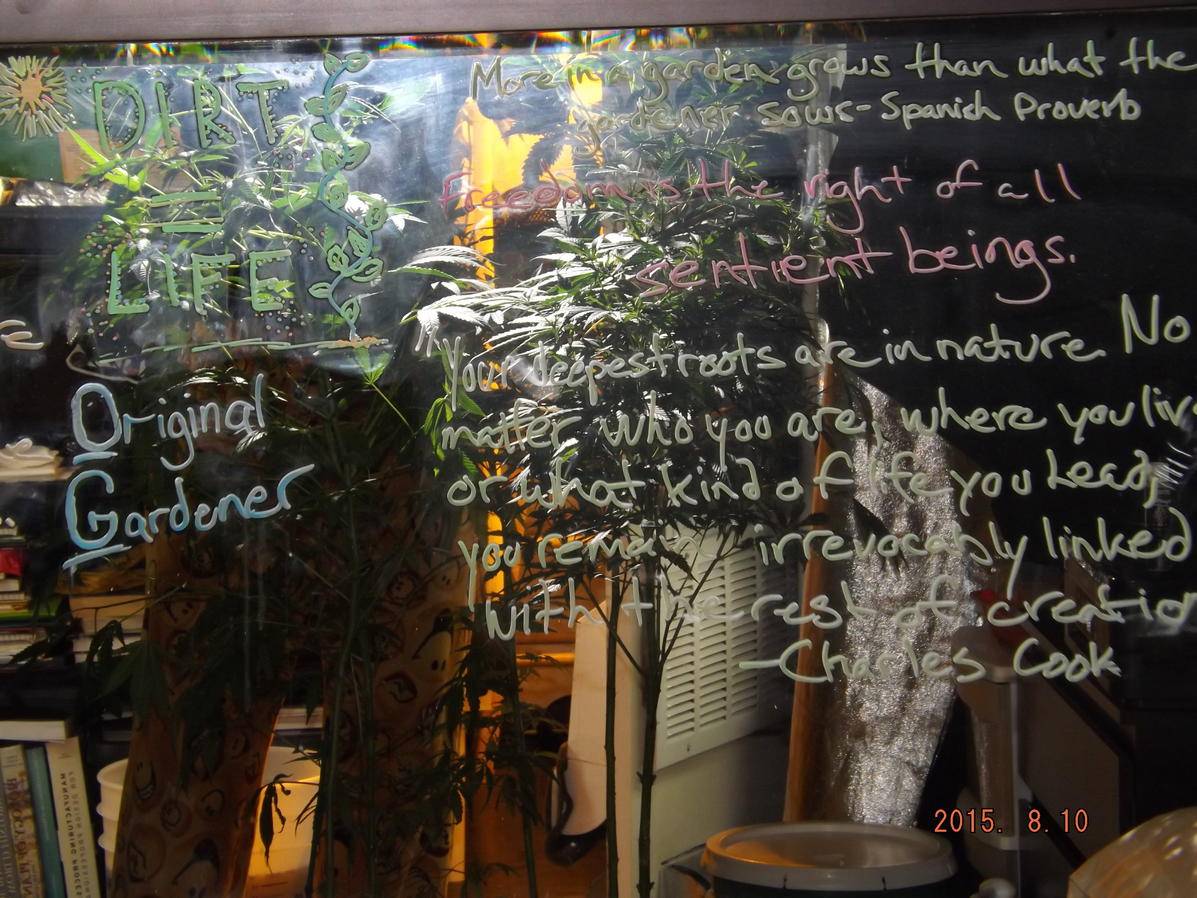 DIRT
=
LIFE
Original
Gardener
More in a garden grows than what the
gardener sows - Spanish Proverb
Freedom is the right of all
sentient beings.
Your deepest roots are in nature. No
matter who you are, where you liv
or what kind of life you lead,
you remain irrevocably linked
with the rest of creation
-Charles Cook
MANUFACTURING PROCESSES
FOR DESIGN PROFESSIONALS
2015. 8.10